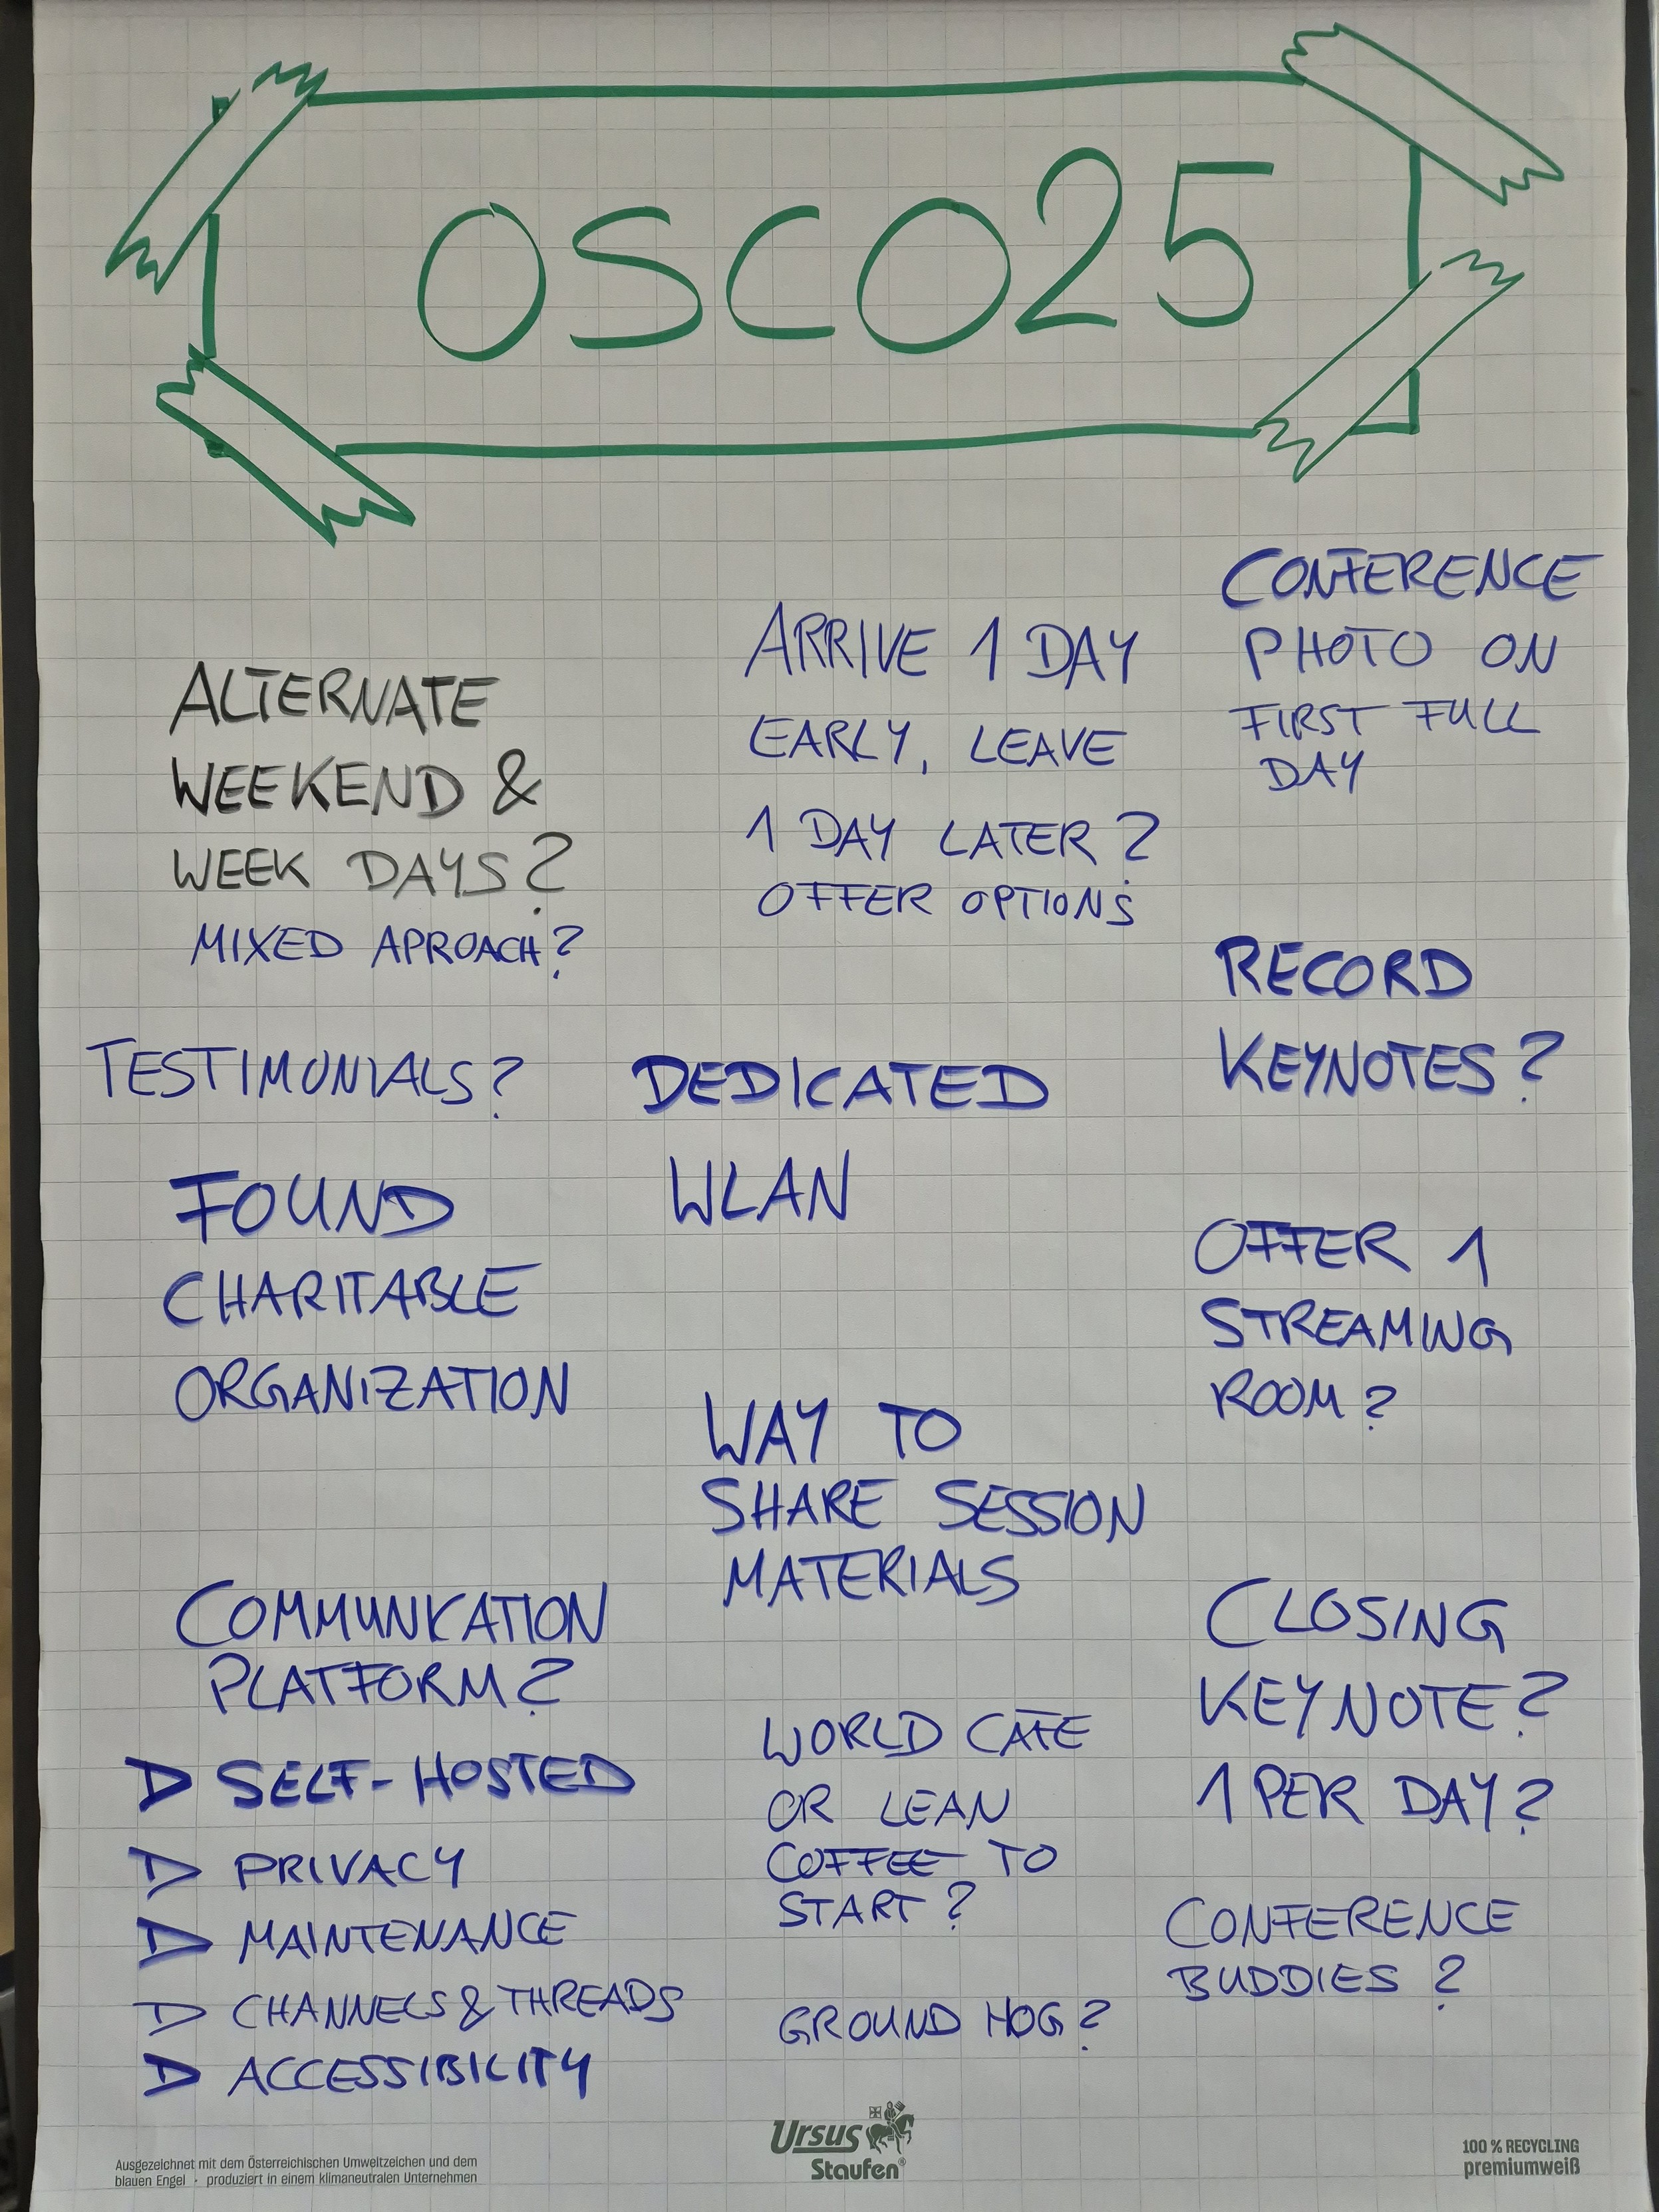 OSCO25
ALTERNATE
WEEKEND &
WEEK DAYS?
MIXED APROACH?
TESTIMONIALS?
FOUND
CHARITABLE
ORGANIZATION
COMMUNICATION
PLATFORM?
SELF-HOSTED
PRIVACY
MAINTENANCE
CHANNELS & THREADS
ACCESSIBILITY
ARRIVE 1 DAY
EARLY, LEAVE
1 DAY LATER?
OFFER OPTIONS
DEDICATED
WLAN
WAY TO
SHARE SESSION
MATERIALS
WORLD CAFE
OR LEAN
COFFEE TO
START?
GROUND HOG?
CONFERENCE
PHOTO ON
FIRST FULL
DAY
RECORD
KEYNOTES?
OFFER 1
STREAMING
ROOM?
CLOSING
KEYNOTE?
1 PER DAY?
CONFERENCE
BUDDIES?
Ausgezeichnet mit dem Österreichischen Umweltzeichen und dem
blauen Engel · produziert in einem klimaneutralen Unternehmen
Ursus
Staufen®
100 % RECYCLING
premiumweiß